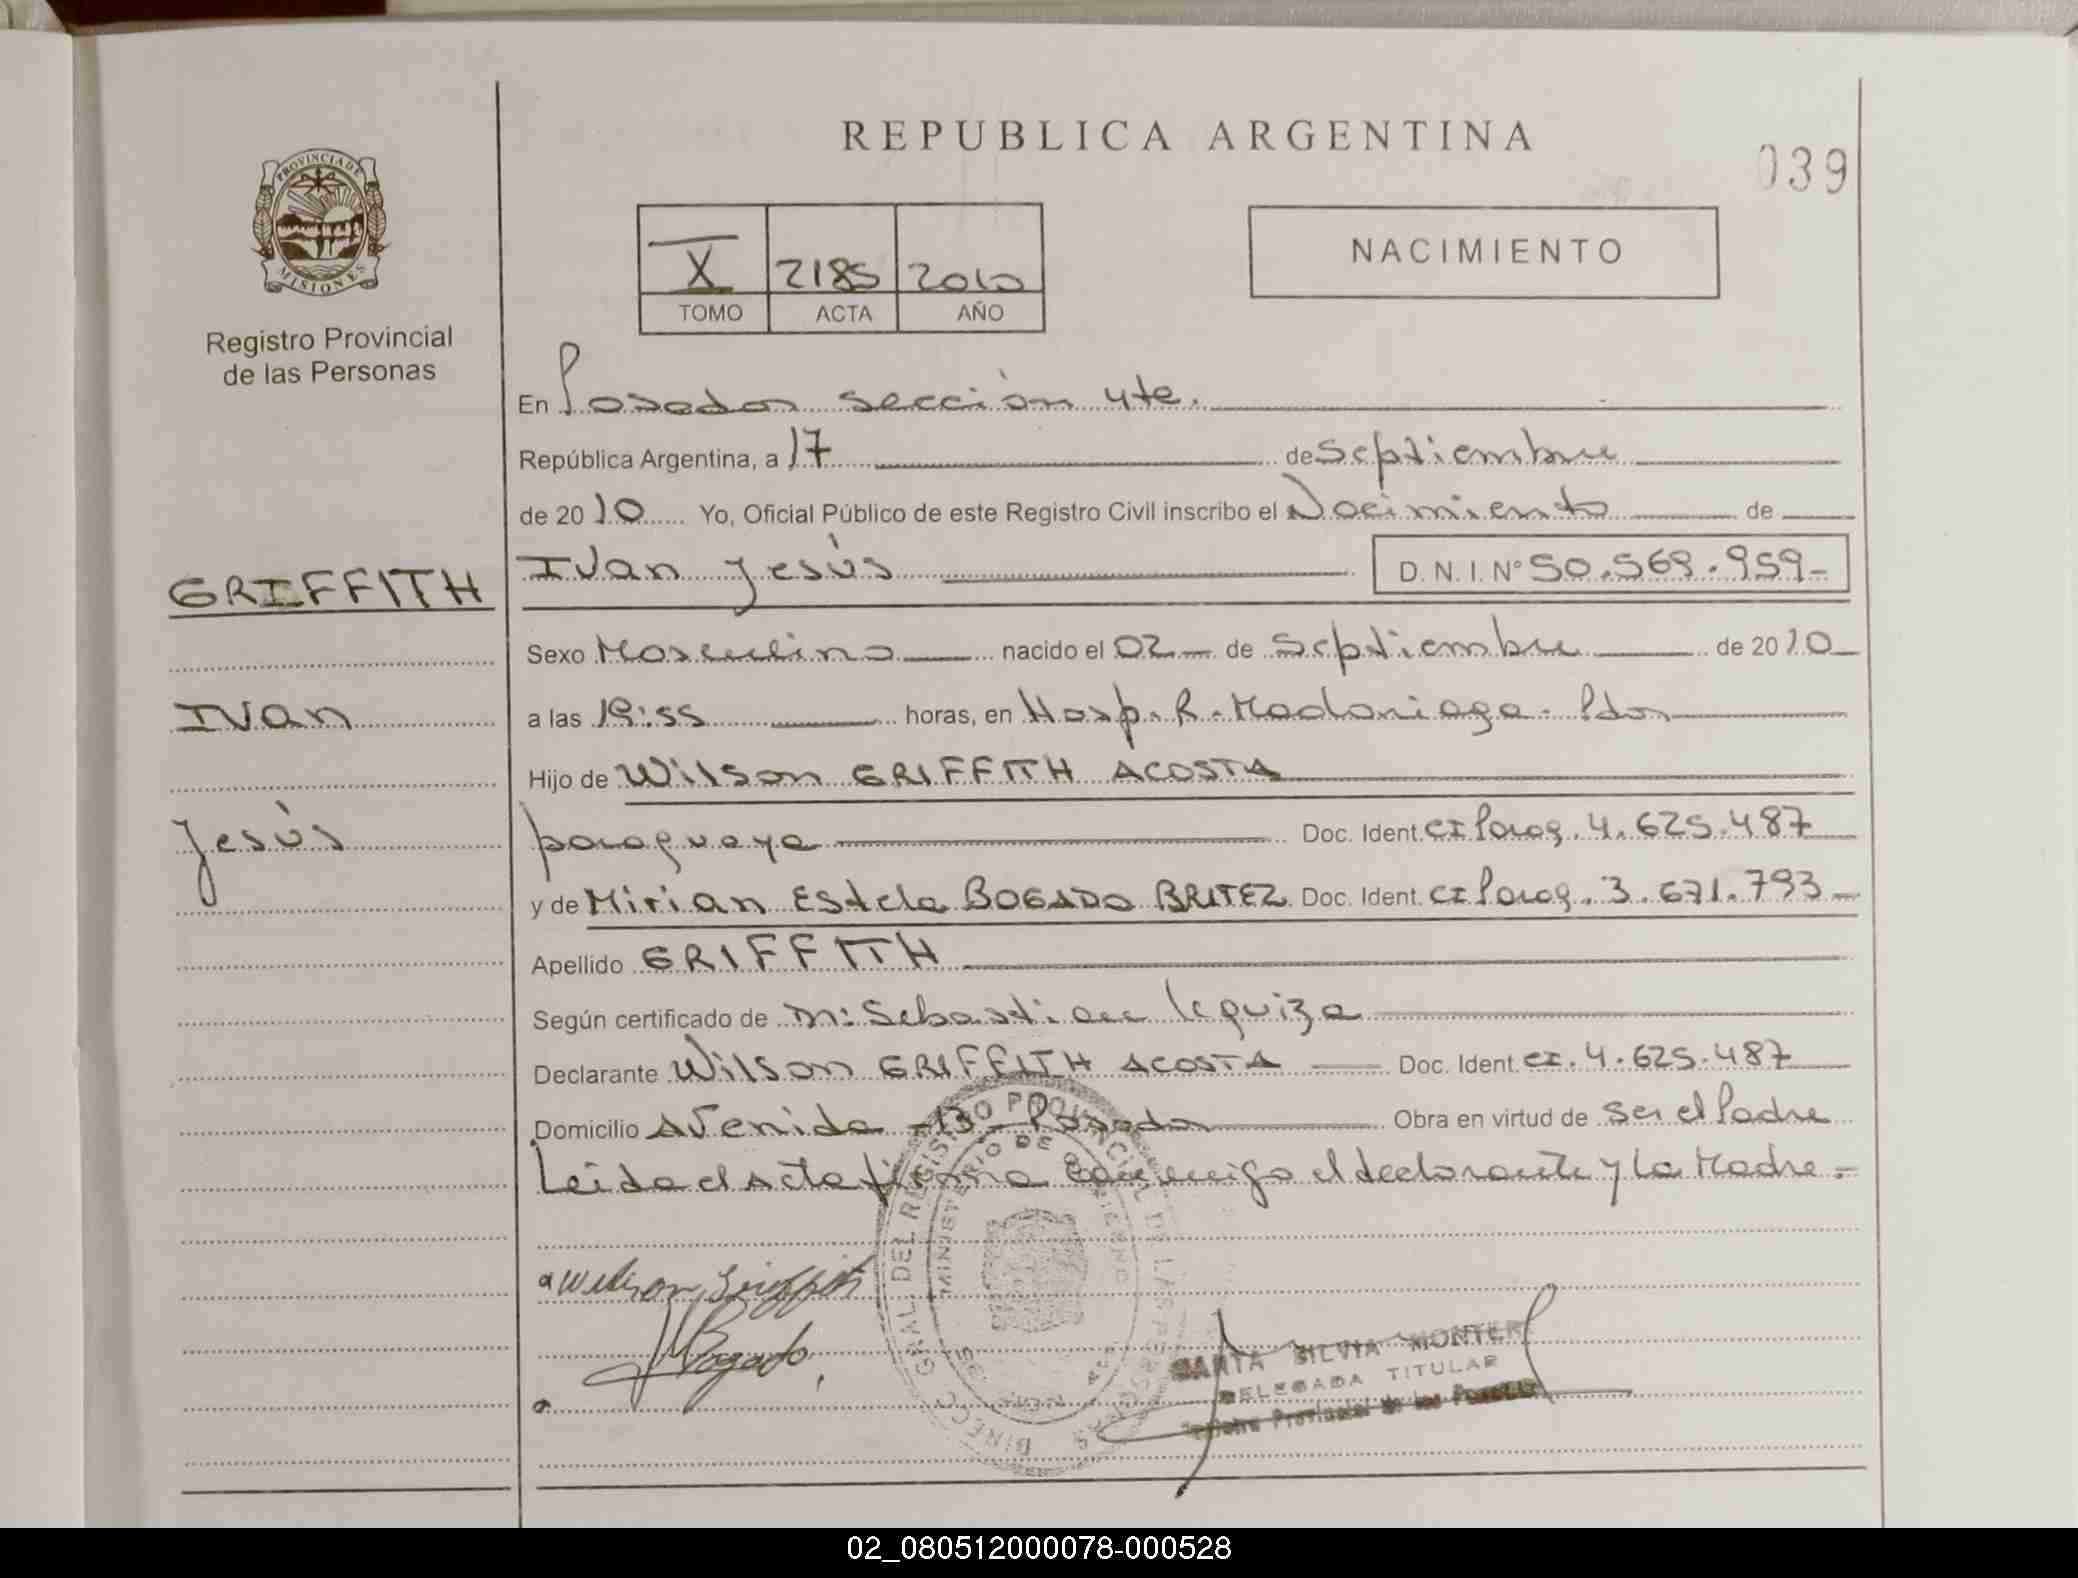 REPUBLICA ARGENTINA
039
PROVINCIA DE
MISIONES
Registro Provincial
de las Personas
X 2185 2010
TOMO ACTA AÑO
NACIMIENTO
En Posadas sección 4te.
República Argentina, a 17 de Septiembre
de 2010 Yo, Oficial Público de este Registro Civil inscribo el Nacimiento de
GRIFFITH
Ivan Jesús D. N. I. Nº 50.569.959-
Sexo Masculino nacido el 02 de Septiembre de 2010
Ivan
a las 19:55 horas, en Hosp. R. Madariaga - Pdas
Hijo de Wilson GRIFFITH ACOSTA
Jesús
paraguaya Doc. Ident. CI Parag. 4.625.487
y de Mirian Estela BOGADO BRITEZ Doc. Ident. CI Parag. 3.671.793-
Apellido GRIFFITH
Según certificado de m: Sebastian Leguiza
Declarante Wilson GRIFFITH ACOSTA Doc. Ident. CI. 4.625.487
Domicilio Avenida -13- Posadas Obra en virtud de ser el Padre
Leida el Acta firma conmigo el declarante y la Madre.-
Wilson Griffith
Bogado
DIRECC. GRAL. DEL REGISTRO PROVINCIAL DE LAS PERSONAS
MINISTERIO DE GOBIERNO
SILVIA MONTER
DELEGADA TITULAR
Registro Provincial de las Personas
02_080512000078-000528